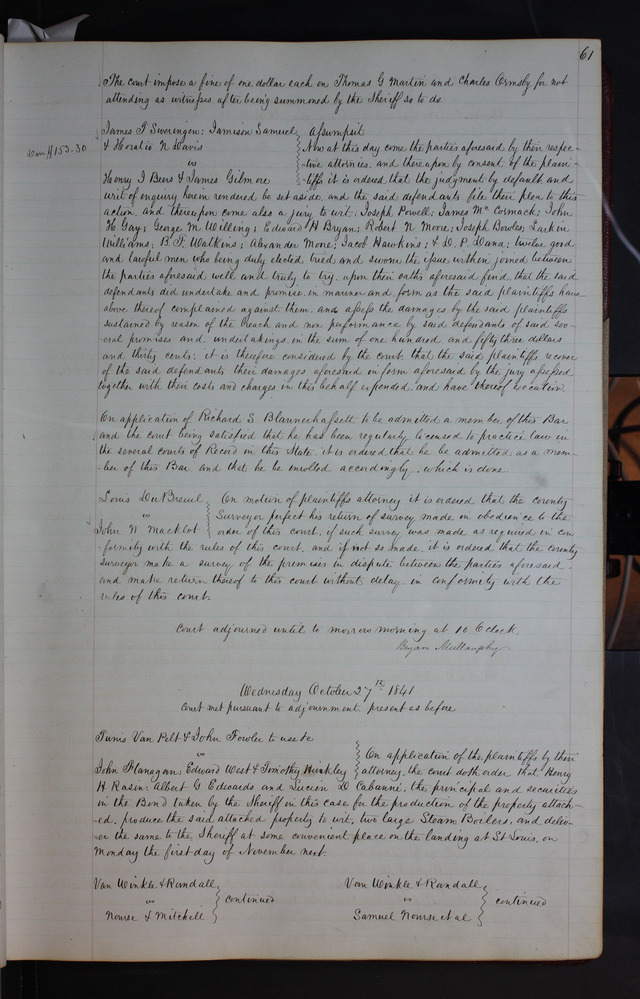 61
The court impose a fine of one dollar each on Thomas G Martin and Charles Ormsby for not
attending as witnesses after being summoned by the Sheriff so to do.
James T Sweringen; Jamison Samuel
& Horatio N Davis
vs
Henry J Beers & James Gilmore
Dam $153.30
Assumpsit
Now at this day come the parties aforesaid by their respec-
-tive attornies, and thereupon by consent of the plain-
-tiffs it is ordered that the judgment by default and
writ of enquiry herein rendered be set aside, and the said defendants file their plea to this
action, and thereupon came also a jury to wit: Joseph Powell; James McCormack; John
H Gay; George M Willing; Edward H Bryan; Robert N Moore; Joseph Bowles; Larkin
Williams; B. F. Watkins; Alexander More; Jacob Hawkins; & D. P. Dana; twelve good
and lawful men who being duly elected tried and sworn the issue within joined between
the parties aforesaid well and truly to try, upon their oaths aforesaid find, that the said
defendants did undertake and promise, in manner and form as the said plaintiffs have
above thereof complained against them, and assess the damages by the said plaintiffs
sustained by reason of the breach and non performance by said defendants of said sev-
-eral promises and undertakings, in the sum of one hundred and fifty three dollars
and thirty cents; it is therefore considered by the court that the said plaintiffs recover
of the said defendants their damages aforesaid in form aforesaid by the jury assessed
together with their costs and charges in this behalf expended, and have thereof execution.
On application of Richard S Blannerhassett to be admitted a member of this Bar
and the court being satisfied that he has been regularly licensed to practice law in
the several courts of Record in this State, it is ordered that he be admitted as a mem-
-ber of this Bar and that he be enrolled accordingly, which is done.
Louis DuBreuil
vs
John N Macklot
On motion of plaintiffs attorney it is ordered that the county
Surveyor perfect his return of survey made in obedience to the
order of this court, if such survey was made as required in con
formity with the rules of this court, and if not so made, it is ordered that the county
surveyor make a survey of the premises in dispute between the parties aforesaid
and make return thereof to this court without delay in conformity with the
rules of this court.
Court adjourned until to morrow morning at 10 OClock
Bryan Mullanphy
Wednesday October 27th 1841
Court met pursuant to adjournment, present as before
Tunis Van Pelt & John Fowler to use &c
vs
John Flanagan; Edward West & Timothy Hinkley
On application of the plaintiffs by their
attorney, the court doth order that Henry
H Rasin; Albert G Edwards and Lucien D Cabanné, the principal and securities
in the Bond taken by the Sheriff in this case for the production of the property attach-
-ed, produce the said attached property to wit, two large Steam Boilers, and deliv-
-er the same to the Sheriff at some convenient place on the landing at St Louis, on
Monday the first day of November next.
Van Winkle & Randall
vs
Nourse & Mitchell
continued
Van Winkle & Randall
vs
Samuel Nourse et al
continued